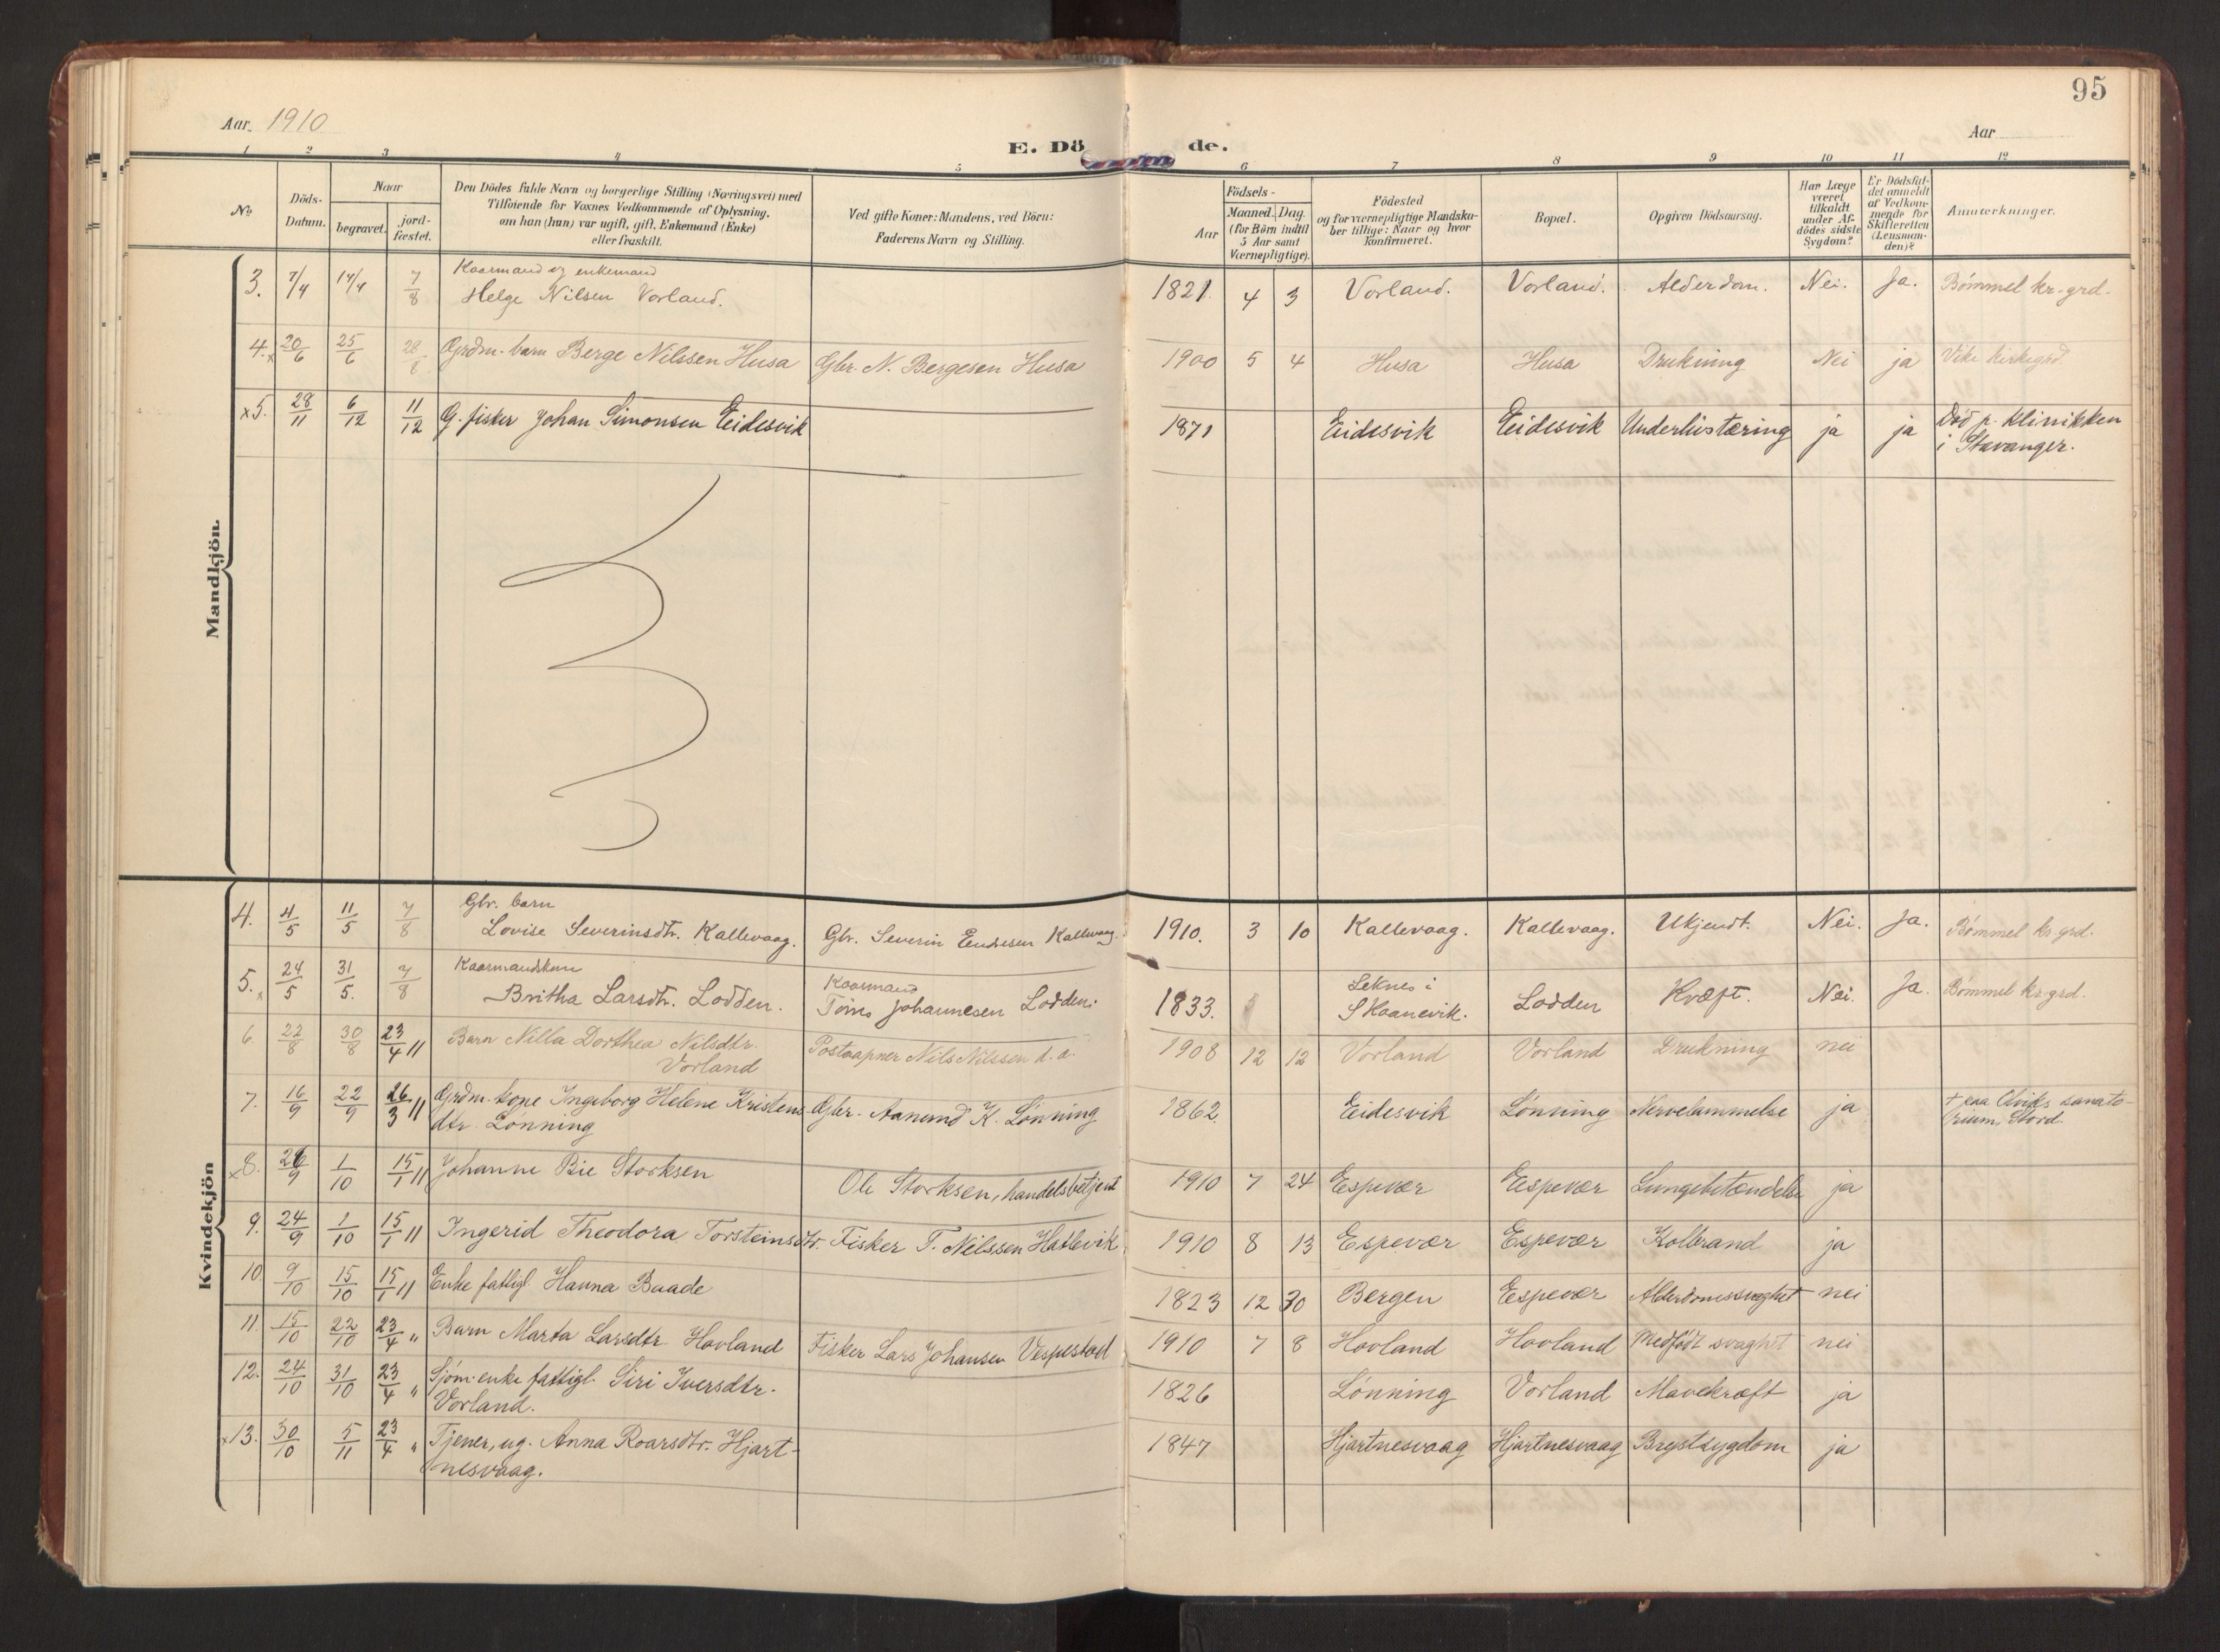 95
Aar. 1910
Aar
E. Dö de.
1 2 3 4 5 6 7 8 9 10 11 12
No. Döds-Datum. Naar begravet. jordfæstet. Den Dödes fulde Navn og borgerlige Stilling (Næringsvei) med
Tilföiende for Voxnes Vedkommende af Oplysning,
om han (hun) var ugift, gift, Enkemand (Enke)
eller fraskilt.
Ved gifte Koner: Mandens, ved Börn:
Faderens Navn og Stilling.
Födsels-
Aar Maaned. Dag.
(for Börn indtil
5 Aar samt
Værnepligtige).
Födested
og for værnepligtige Mandska-
ber tillige: Naar og hvor
konfirmeret.
Bopæl.
Opgiven Dödsaarsag.
Har Læge
været
tilkaldt
under Af-
dödes sidste
Sygdom?
Er Dödsfal-
det anmeldt
af Vedkom-
mende for
Skifteretten
(Lensman-
den)?
Anmærkninger.
Mandkjön.
Kaarmand og enkemand
3. 7/4 14/4 7/8 Helge Nilsen Vorland. 1821. 4 3 Vorland. Vorland. Alderdom. Nei. Ja. Bømmel kr-grd.
4. x 20/6 25/6 28/8 Grdm. barn Berge Nilssen Husa Gbr. N. Bergesen Husa 1900 5 4 Husa Husa Drukning Nei ja Vike kirkegrd
x5. 28/11 6/12 11/12 G. fisker Johan Simonsen Eidesvik 1871 Eidesvik Eidesvik Underlivstæring ja ja Död p. klinikken
i Stavanger.
Kvindekjön
Gbr. barn
4. 4/5 11/5 7/8 Lovise Severinsdtr. Kallevaag. Gbr. Severin Endresen Kallevaag. 1910. 3 10 Kallevaag. Kallevaag. Ukjendt. Nei. Ja. Bømmel kr grd.
Kaarmandskone Kaarmand Leknes i
5. x 24/5 31/5. 7/8 Britha Larsdtr. Lodden. Tönes Johannesen Lodden. 1833. Skaanevik. Lodden Kræft. Nei. Ja. Bømmel kr-grd.
6. 22/8 30/8 23/4 11 Barn Nilla Dorthea Nilsdtr.
Vorland Postaapner Nils Nilssen d. a. 1908 12 12 Vorland Vorland Drukning nei
7. 16/9 22/9 26/3 11 Grdm. kone Ingeborg Helene Kristens-
dtr. Lønning Gbr. Aanund K. Lønning 1862 Eidesvik Lønning Nervelammelse ja + paa Olviks sanato-
rium, Stord.
x8. 26/9 1/10 15/1 11 Johanne Bie Storksen Ole Storksen, handelsbetjent 1910 7 24 Espevær Espevær Lungebetændelse ja
9. 24/9 1/10 15/1 11 Ingerid Theodora Torsteinsdtr. Fisker T. Nilssen Hatlevik 1910 8 13 Espevær Espevær Kolbrand ja
10 9/10 15/10 15/1 11 Enke fattigl. Hanna Baade 1823 12 30 Bergen Espevær Alderdomssvaghet nei
11. 15/10 22/10 23/4 " Barn Marta Larsdtr Hovland Fisker Lars Johansen Vespestad 1910 7 8 Hovland Hovland Medfødt svaghet nei
12. 24/10 31/10 23/4 " Sjøm. enke fattigl. Siri Iversdtr.
Vorland. 1826 Lønning Vorland Mavekræft ja
x13. 30/10 5/11 23/4 " Tjener, ug. Anna Roarsdtr. Hjart-
nesvaag. 1847 Hjartnesvaag Hjartnesvaag Brystsygdom ja